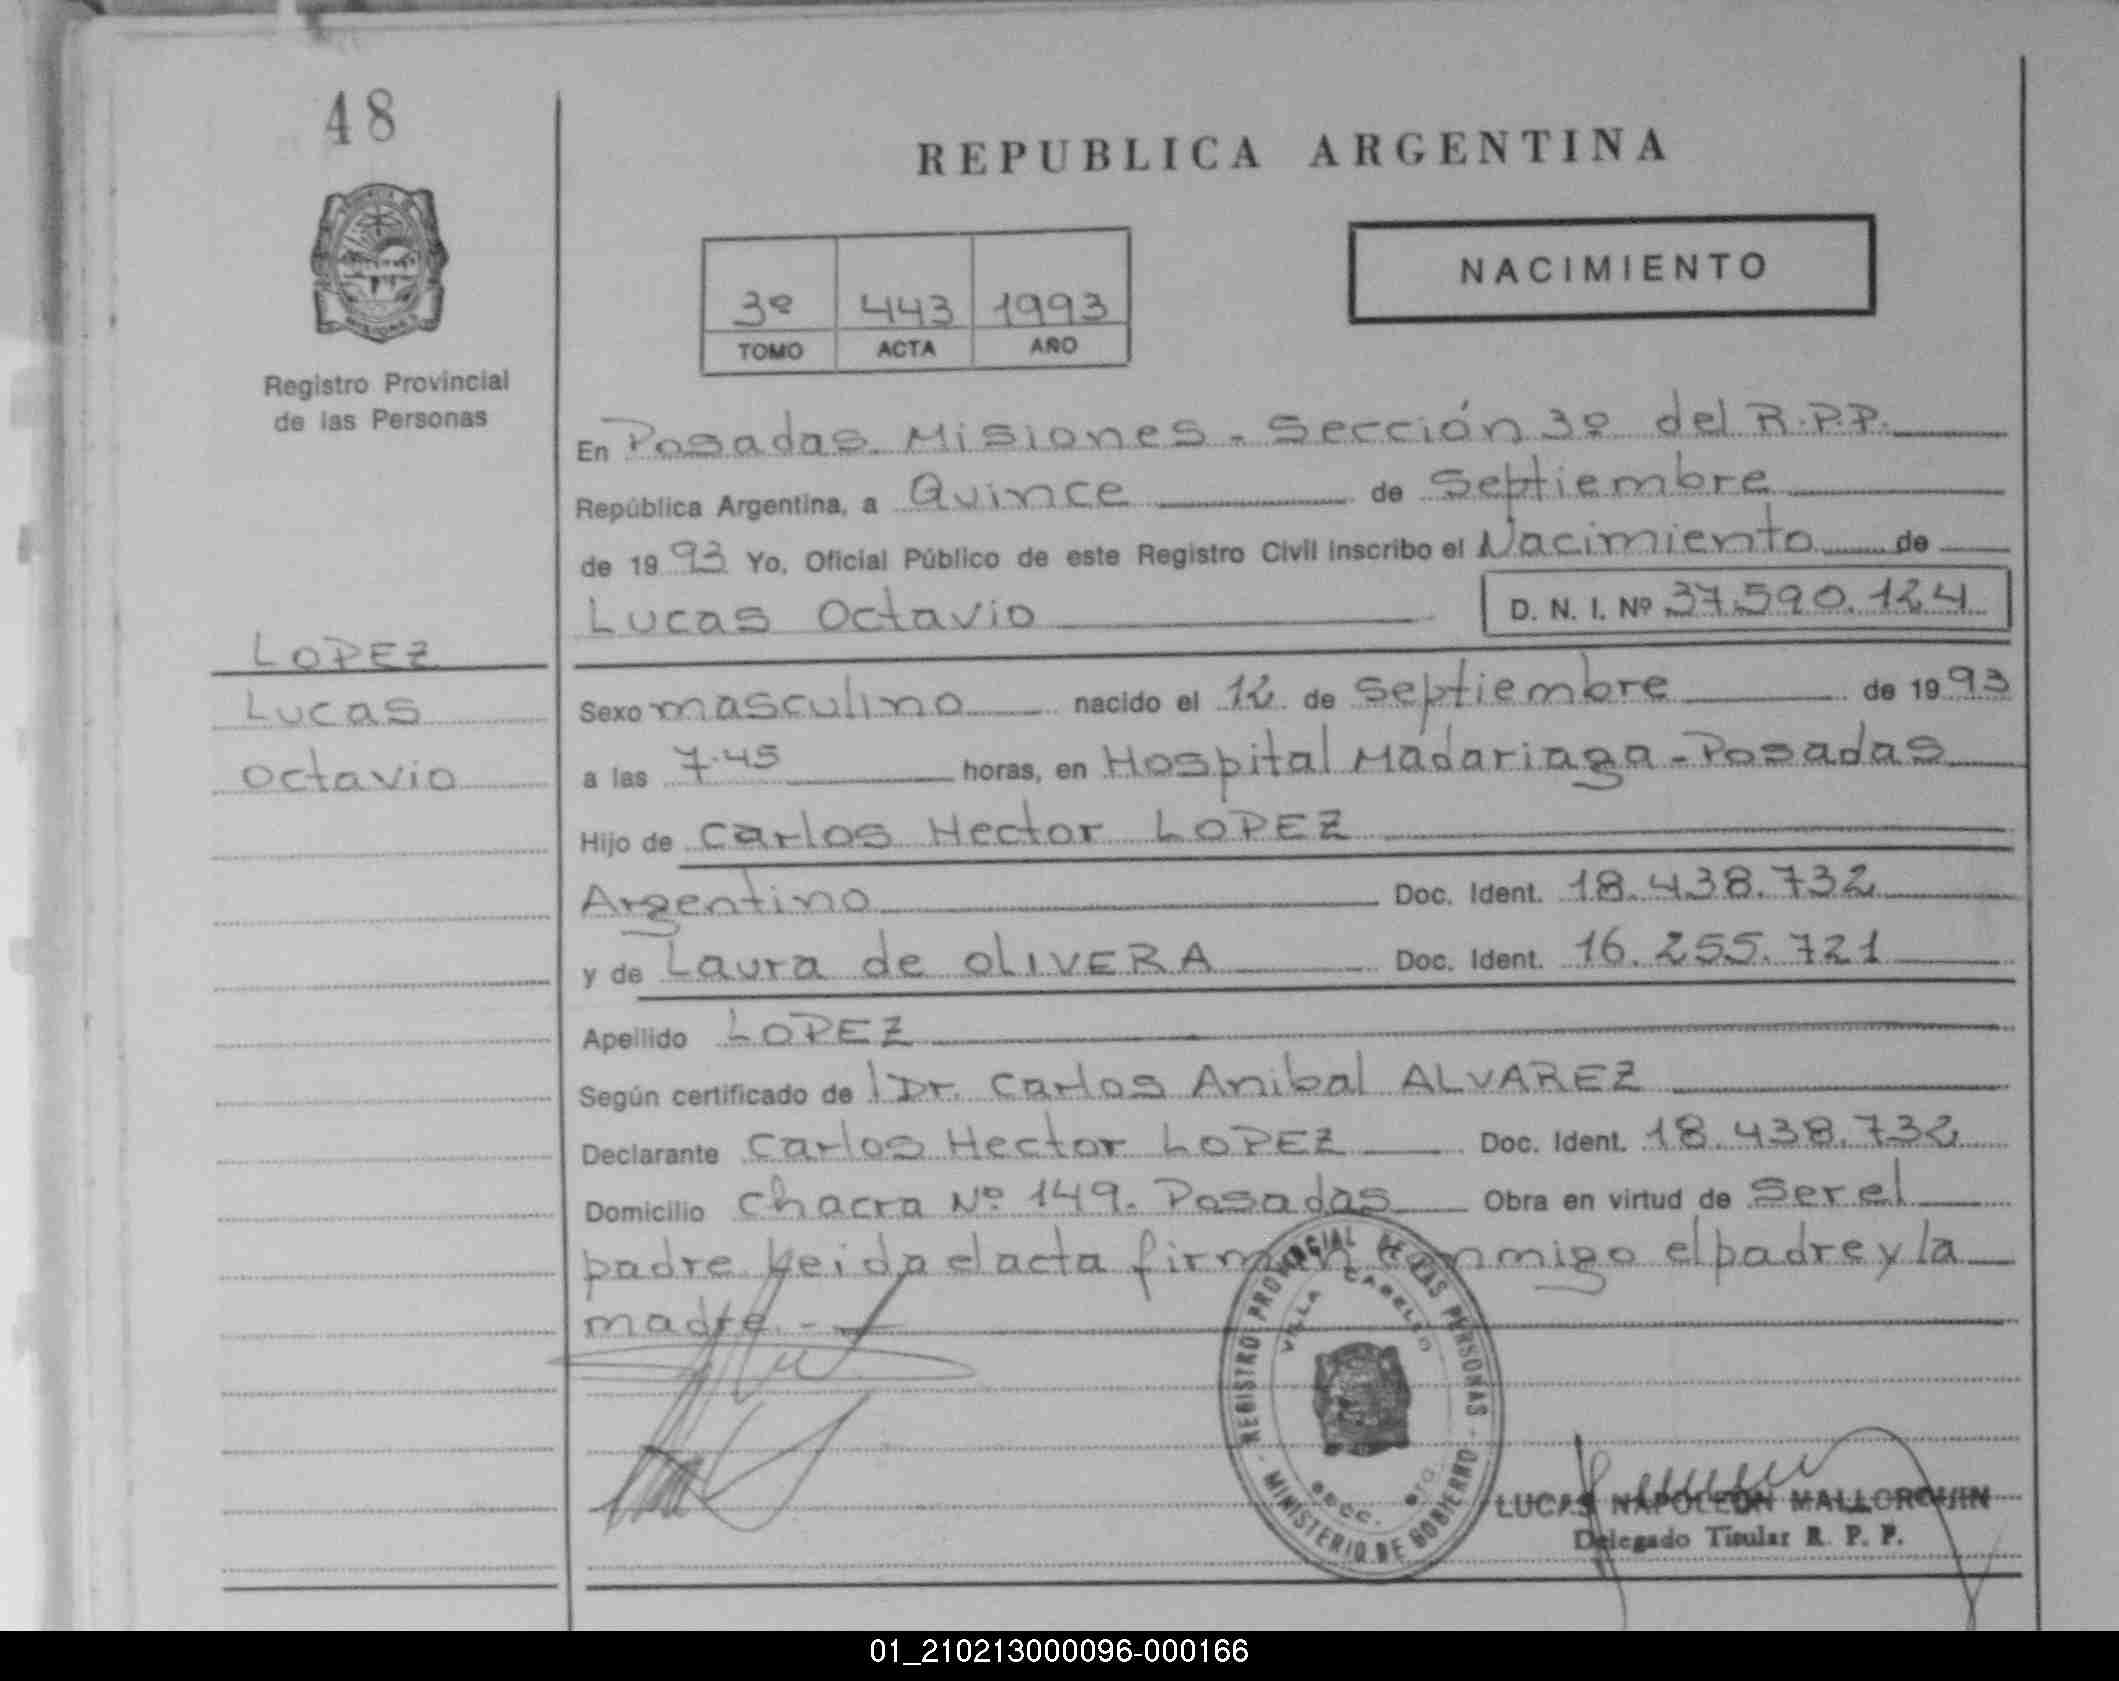 48
REPUBLICA ARGENTINA
NACIMIENTO
3º 443 1993
TOMO ACTA AÑO
Registro Provincial
de las Personas
En Posadas. Misiones - Sección 3º del R.P.P.
República Argentina, a Quince de Septiembre
de 1993 Yo, Oficial Público de este Registro Civil inscribo el Nacimiento de
Lucas Octavio D. N. I. Nº 37.590.124
LOPEZ
Lucas
Octavio
Sexo masculino nacido el 12 de Septiembre de 1993
a las 7.45 horas, en Hospital Madariaga - Posadas
Hijo de Carlos Hector LOPEZ
Argentino Doc. Ident. 18.438.732
y de Laura de OLIVERA Doc. Ident. 16.255.721
Apellido LOPEZ
Según certificado de Dr. Carlos Anibal ALVAREZ
Declarante Carlos Hector LOPEZ Doc. Ident. 18.438.732
Domicilio Chacra Nº 149. Posadas Obra en virtud de Ser el
padre Leida el acta firman conmigo el padre y la
madre.-
REGISTRO PROVINCIAL DE LAS PERSONAS
VILLA CABELLO
MINISTERIO DE GOBIERNO
LUCAS NAPOLEON MALLORQUIN
Delegado Titular R. P. P.
01_210213000096-000166